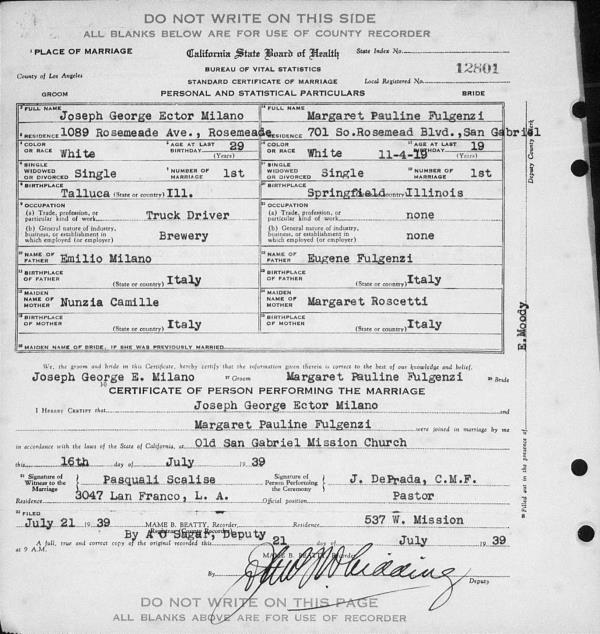 DO NOT WRITE ON THIS SIDE
ALL BLANKS BELOW ARE FOR USE OF COUNTY RECORDER
1 PLACE OF MARRIAGE California State Board of Health State Index No.
BUREAU OF VITAL STATISTICS 12801
County of Los Angeles STANDARD CERTIFICATE OF MARRIAGE Local Registered No.
GROOM PERSONAL AND STATISTICAL PARTICULARS BRIDE
FULL NAME Joseph George Ector Milano FULL NAME Margaret Pauline Fulgenzi
RESIDENCE 1089 Rosemeade Ave., Rosemeade RESIDENCE 701 So.Rosemead Blvd.,San Gabriel
COLOR OR RACE White AGE AT LAST BIRTHDAY 29 (Years) COLOR OR RACE White 11-4-19 AGE AT LAST BIRTHDAY 19 (Years)
SINGLE WIDOWED OR DIVORCED Single NUMBER OF MARRIAGE 1st SINGLE WIDOWED OR DIVORCED Single NUMBER OF MARRIAGE 1st
BIRTHPLACE Talluca (State or country) Ill. BIRTHPLACE Springfield Illinois
OCCUPATION OCCUPATION
(a) Trade, profession, or particular kind of work Truck Driver (a) Trade, profession, or particular kind of work none
(b) General nature of industry, business, or establishment in which employed (or employer) Brewery (b) General nature of industry, business, or establishment in which employed (or employer) none
NAME OF FATHER Emilio Milano NAME OF FATHER Eugene Fulgenzi
BIRTHPLACE OF FATHER (State or country) Italy BIRTHPLACE OF FATHER (State or country) Italy
MAIDEN NAME OF MOTHER Nunzia Camille MAIDEN NAME OF MOTHER Margaret Roscetti
BIRTHPLACE OF MOTHER (State or country) Italy BIRTHPLACE OF MOTHER (State or country) Italy
MAIDEN NAME OF BRIDE, IF SHE WAS PREVIOUSLY MARRIED
We, the groom and bride in this Certificate, hereby certify that the information given therein is correct to the best of our knowledge and belief.
Joseph George E. Milano Groom Margaret Pauline Fulgenzi Bride
CERTIFICATE OF PERSON PERFORMING THE MARRIAGE
I HEREBY CERTIFY that Joseph George Ector Milano and
Margaret Pauline Fulgenzi were joined in marriage by me
in accordance with the laws of the State of California, at Old San Gabriel Mission Church
this 16th day of July 1939
Signature of Witness to the Marriage Pasquali Scalise Signature of Person Performing the Ceremony J. DePrada, C.M.F.
Residence 3047 Lan Franco, L. A. Official position Pastor
FILED
July 21 1939 MAME B. BEATTY, Recorder Residence 537 W. Mission
By A O Sagar, Deputy
A full, true and correct copy of the original recorded this 21 day of July 1939
at 9 A.M. MAME B. BEATTY, Recorder
By Deputy
DO NOT WRITE ON THIS PAGE
ALL BLANKS ABOVE ARE FOR USE OF RECORDER
Deputy County Clerk
E. Moody
Filled out in the presence of